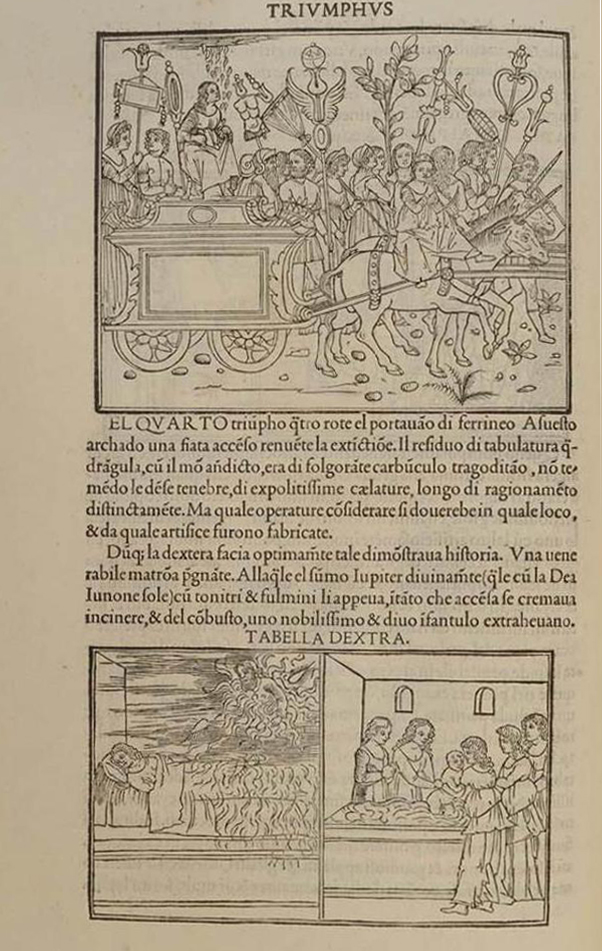 TRIVMPHVS
EL QVARTO triũpho q̃tro rote el portauão di ferrineo Asuesto
archado una fiata accẽso renuẽte la extĩctiõe. Il residuo di tabulatura q̃-
drãgula, cũ il mõ añdicto, era di folgorãte carbũculo tragoditão, nõ te-
mẽdo le dẽse tenebre, di expolitissime cælature, longo di ragionamẽto
distinctamẽte. Ma quale operature cõsiderare si douerebe in quale loco,
& da quale artifice furono fabricate.
Dũq; la dextera facia optimam̃te tale dimõstraua historia. Vna uene
rabile matrõa p̃gnãte. Alla q̃le el sũmo Iupiter diuinam̃te (q̃le cũ la Dea
Iunone sole) cũ tonitri & fulmini li appeua, ĩtãto che accẽsa se cremaua
in cinere, & del cõbusto, uno nobilissimo & diuo ĩfantulo extraheuano.
TABELLA DEXTRA.